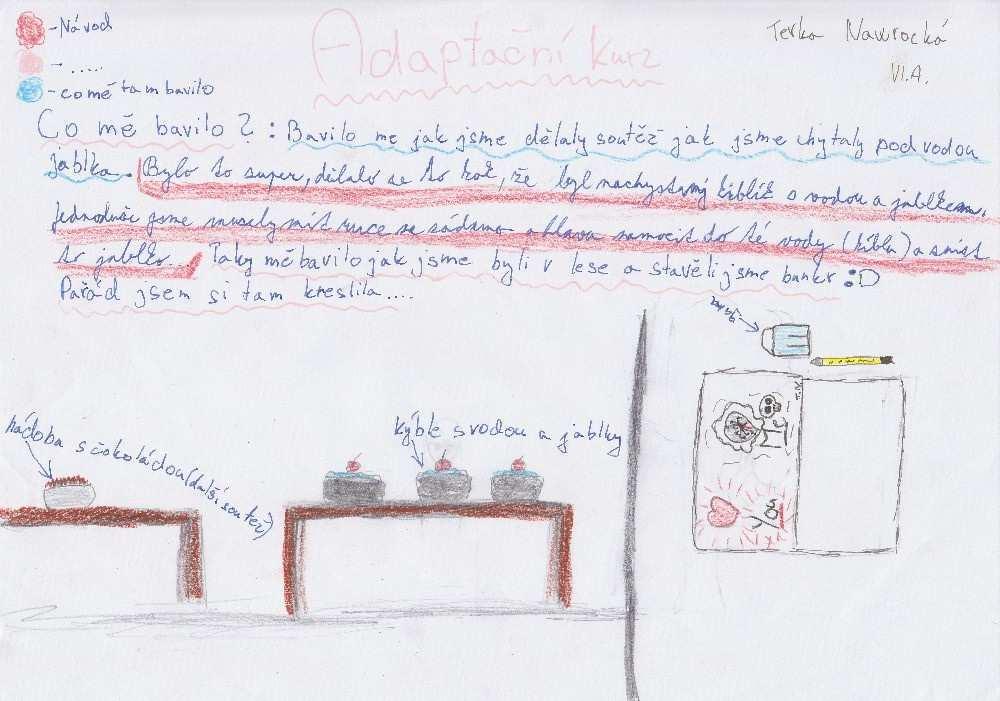 -Návod
- .....
-co mě tam bavilo
Adaptační kurz
Terka Nawrocká
VI.A.
Co mě bavilo? : Bavilo me jak jsme dělaly soutěž jak jsme chytaly pod vodou
jablka. Bylo to super, dělalo se to tak, že byl nachystaný kiblík s vodou a jablkem.
Jednoduše jsme musely mít ruce za zádama a hlava samočit do té vody (kiblu) a sníst
to jablko. Taky mě bavilo jak jsme byli v lese a stavěli jsme bunkr :D
Pařád jsem si tam kreslila....
nádoba s čokoládou (další soutěž)
kýble s vodou a jablky